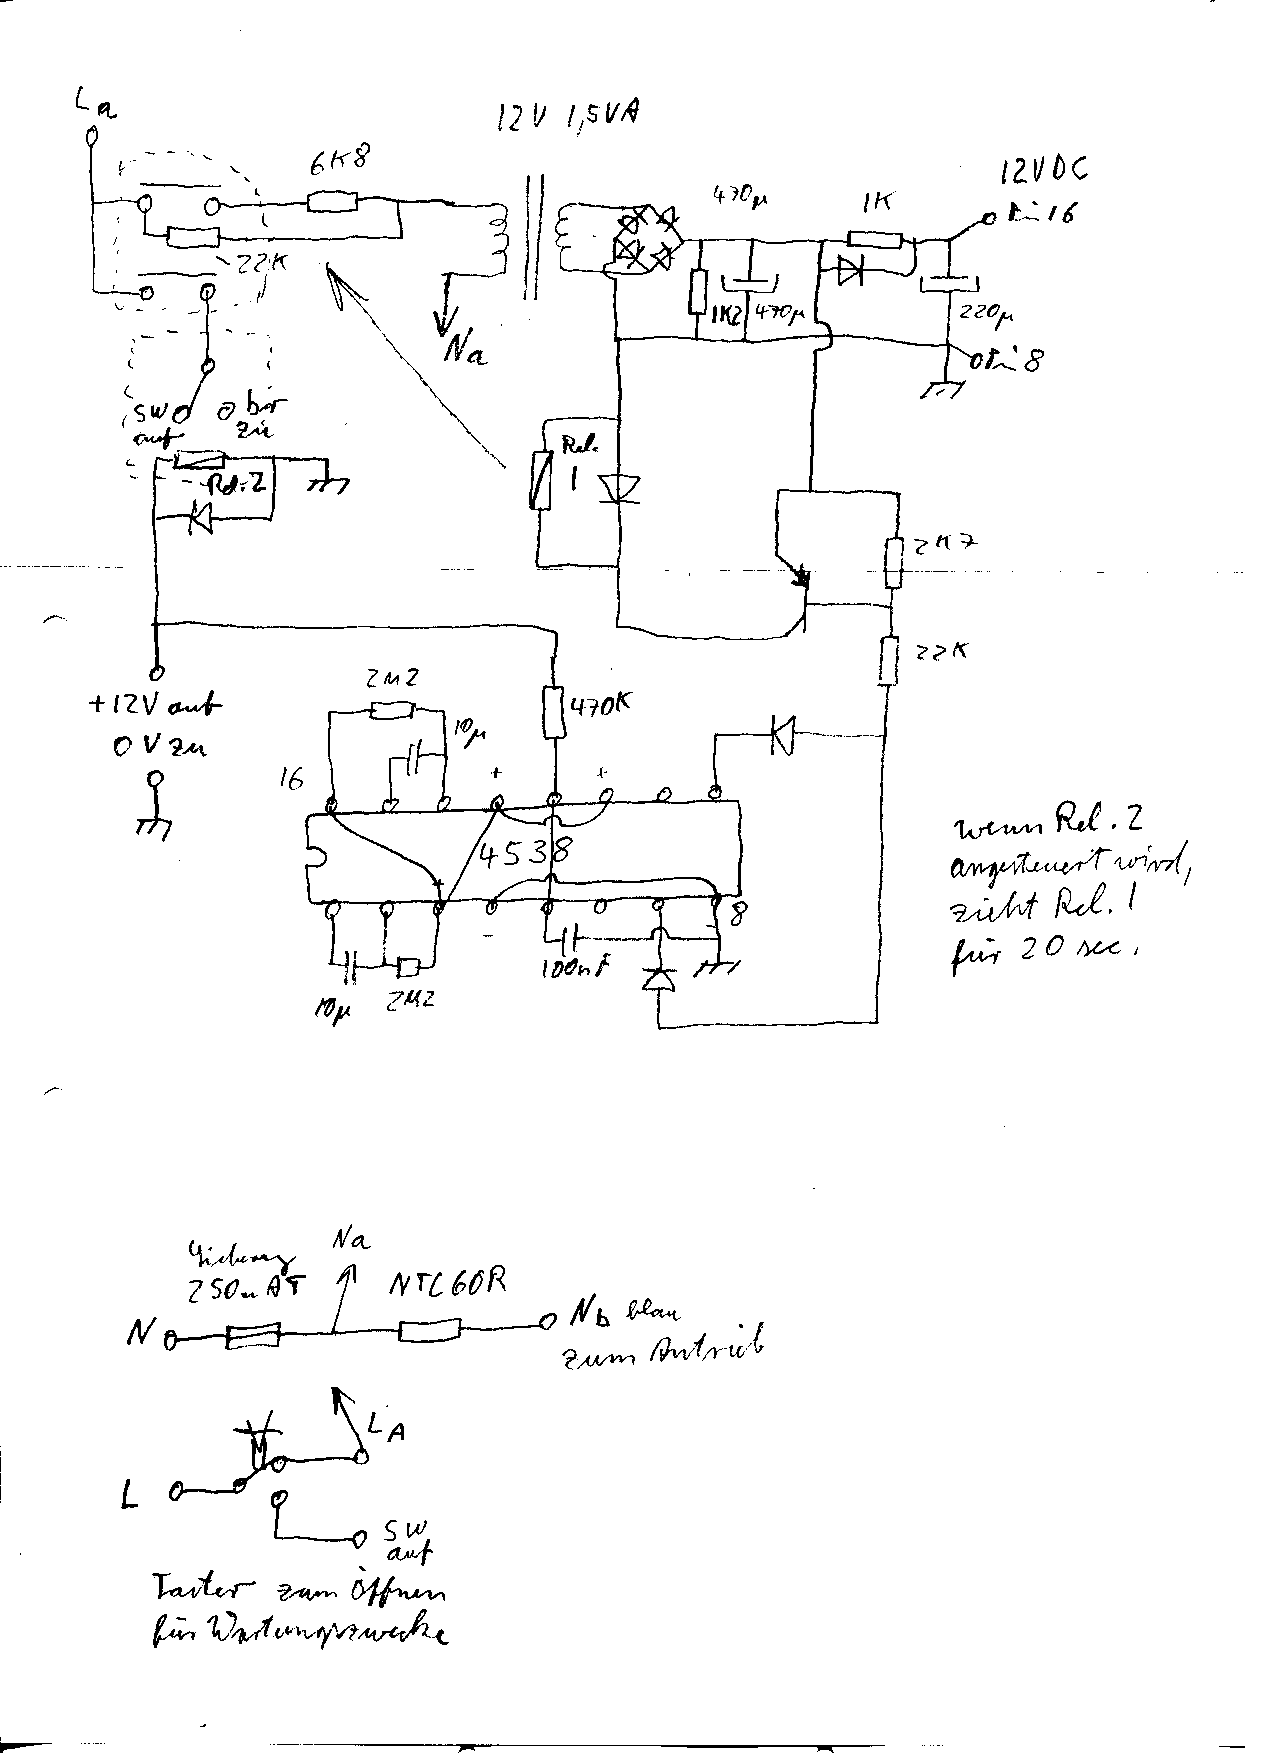 La
12V 1,5VA
6K8
12VDC
470µ
1K
Pin 16
22K
1K2
470µ
220µ
Na
Pin 8
SW
auf
br
zu
Rel.
1
Rel. 2
2K7
22K
+12V auf
0V zu
2M2
10µ
470K
16
+
+
4538
+
-
8
100nF
10µ
2M2
wenn Rel. 2
angesteuert wird,
zieht Rel. 1
für 20 sec.
Sicherung
250mAT
Na
NTC60R
N
Nb blau
zum Antrieb
LA
L
SW
auf
Taster zum Öffnen
für Wartungszwecke